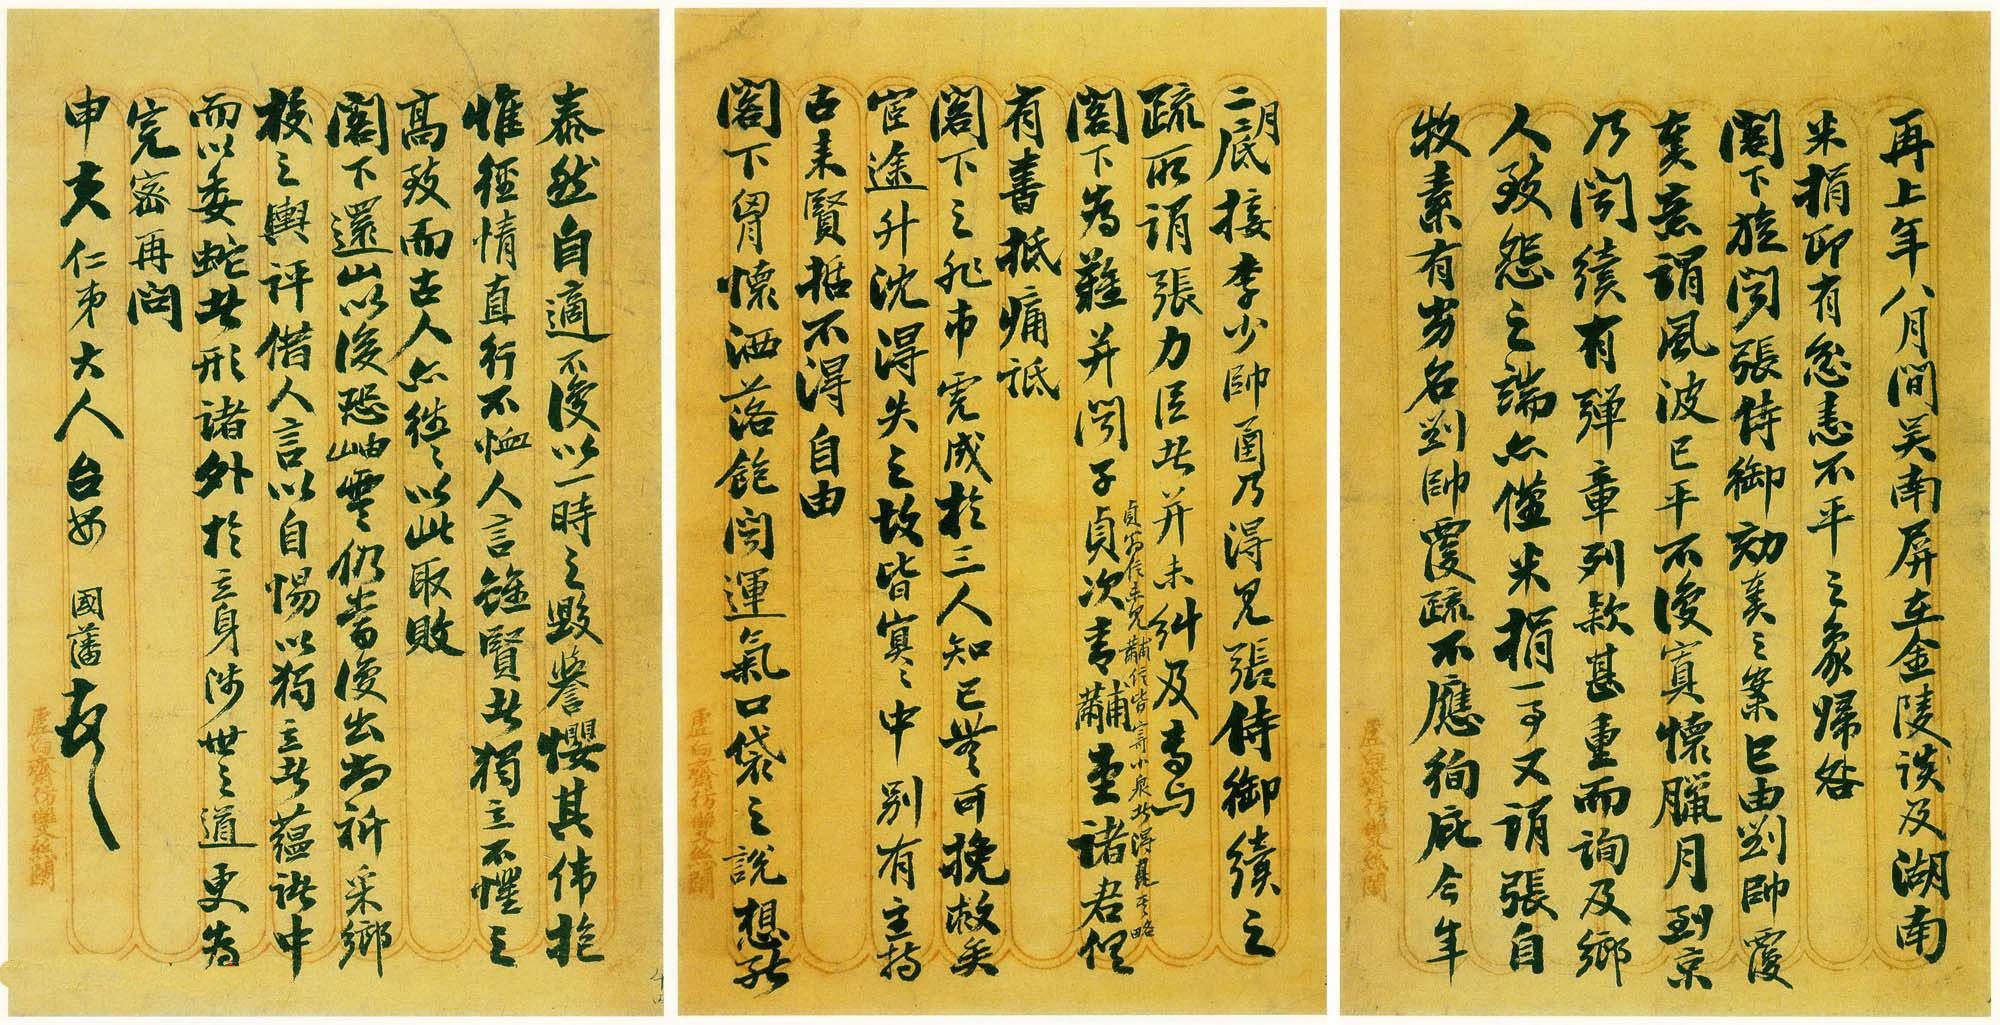 再上年八月間吴南屏在金陵談及湖南
米捐卽有忿恚不平之象歸咎
閣下旋聞張侍御劾奏之案已由劉帥覆
奏意謂風波已平不復寘懷臘月到京
乃聞續有彈章列款甚重而詢及鄉
人致怨之端亦僅米捐一事又謂張自
牧素有劣名劉帥覆疏不應徇庇今年
二月底接李少帥函乃得見張侍御續之
疏所謂張力臣者并未糾及專与
閣下為難并聞子貞次青黼堂諸君俱
貞寄信未見黼信皆寄小泉者得見其略
有書抵痛詆
閣下之飛市虎成於三人知已無可挽救矣
宦途升沈得失之故皆寘之中別有主持
古来賢喆不得自由
閣下胸懷洒落飽聞運氣口袋之說想能
泰然自適不復以一時之毀譽攖其偉抱
惟徑情直行不恤人言雖賢者獨立不懼之
高致而古人亦往々以此取敗
閣下還山以後恐岫雲仍當復出尚祈采鄉
校之輿評借人言以自惕以獨立者蘊諸中
而以委蛇者形諸外於立身涉世之道更為
完密再問
申夫仁弟大人台安 國藩
虛白齋仿蠒紙闌
虛白齋仿蠒紙闌
虛白齋仿蠒紙闌